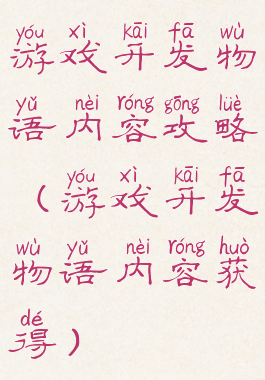 yóu xì kāi fā wù
游戏开发物
yǔ nèi róng gōng lüè
语内容攻略
yóu xì kāi fā
(游戏开发
wù yǔ nèi róng huò
物语内容获
dé
得)